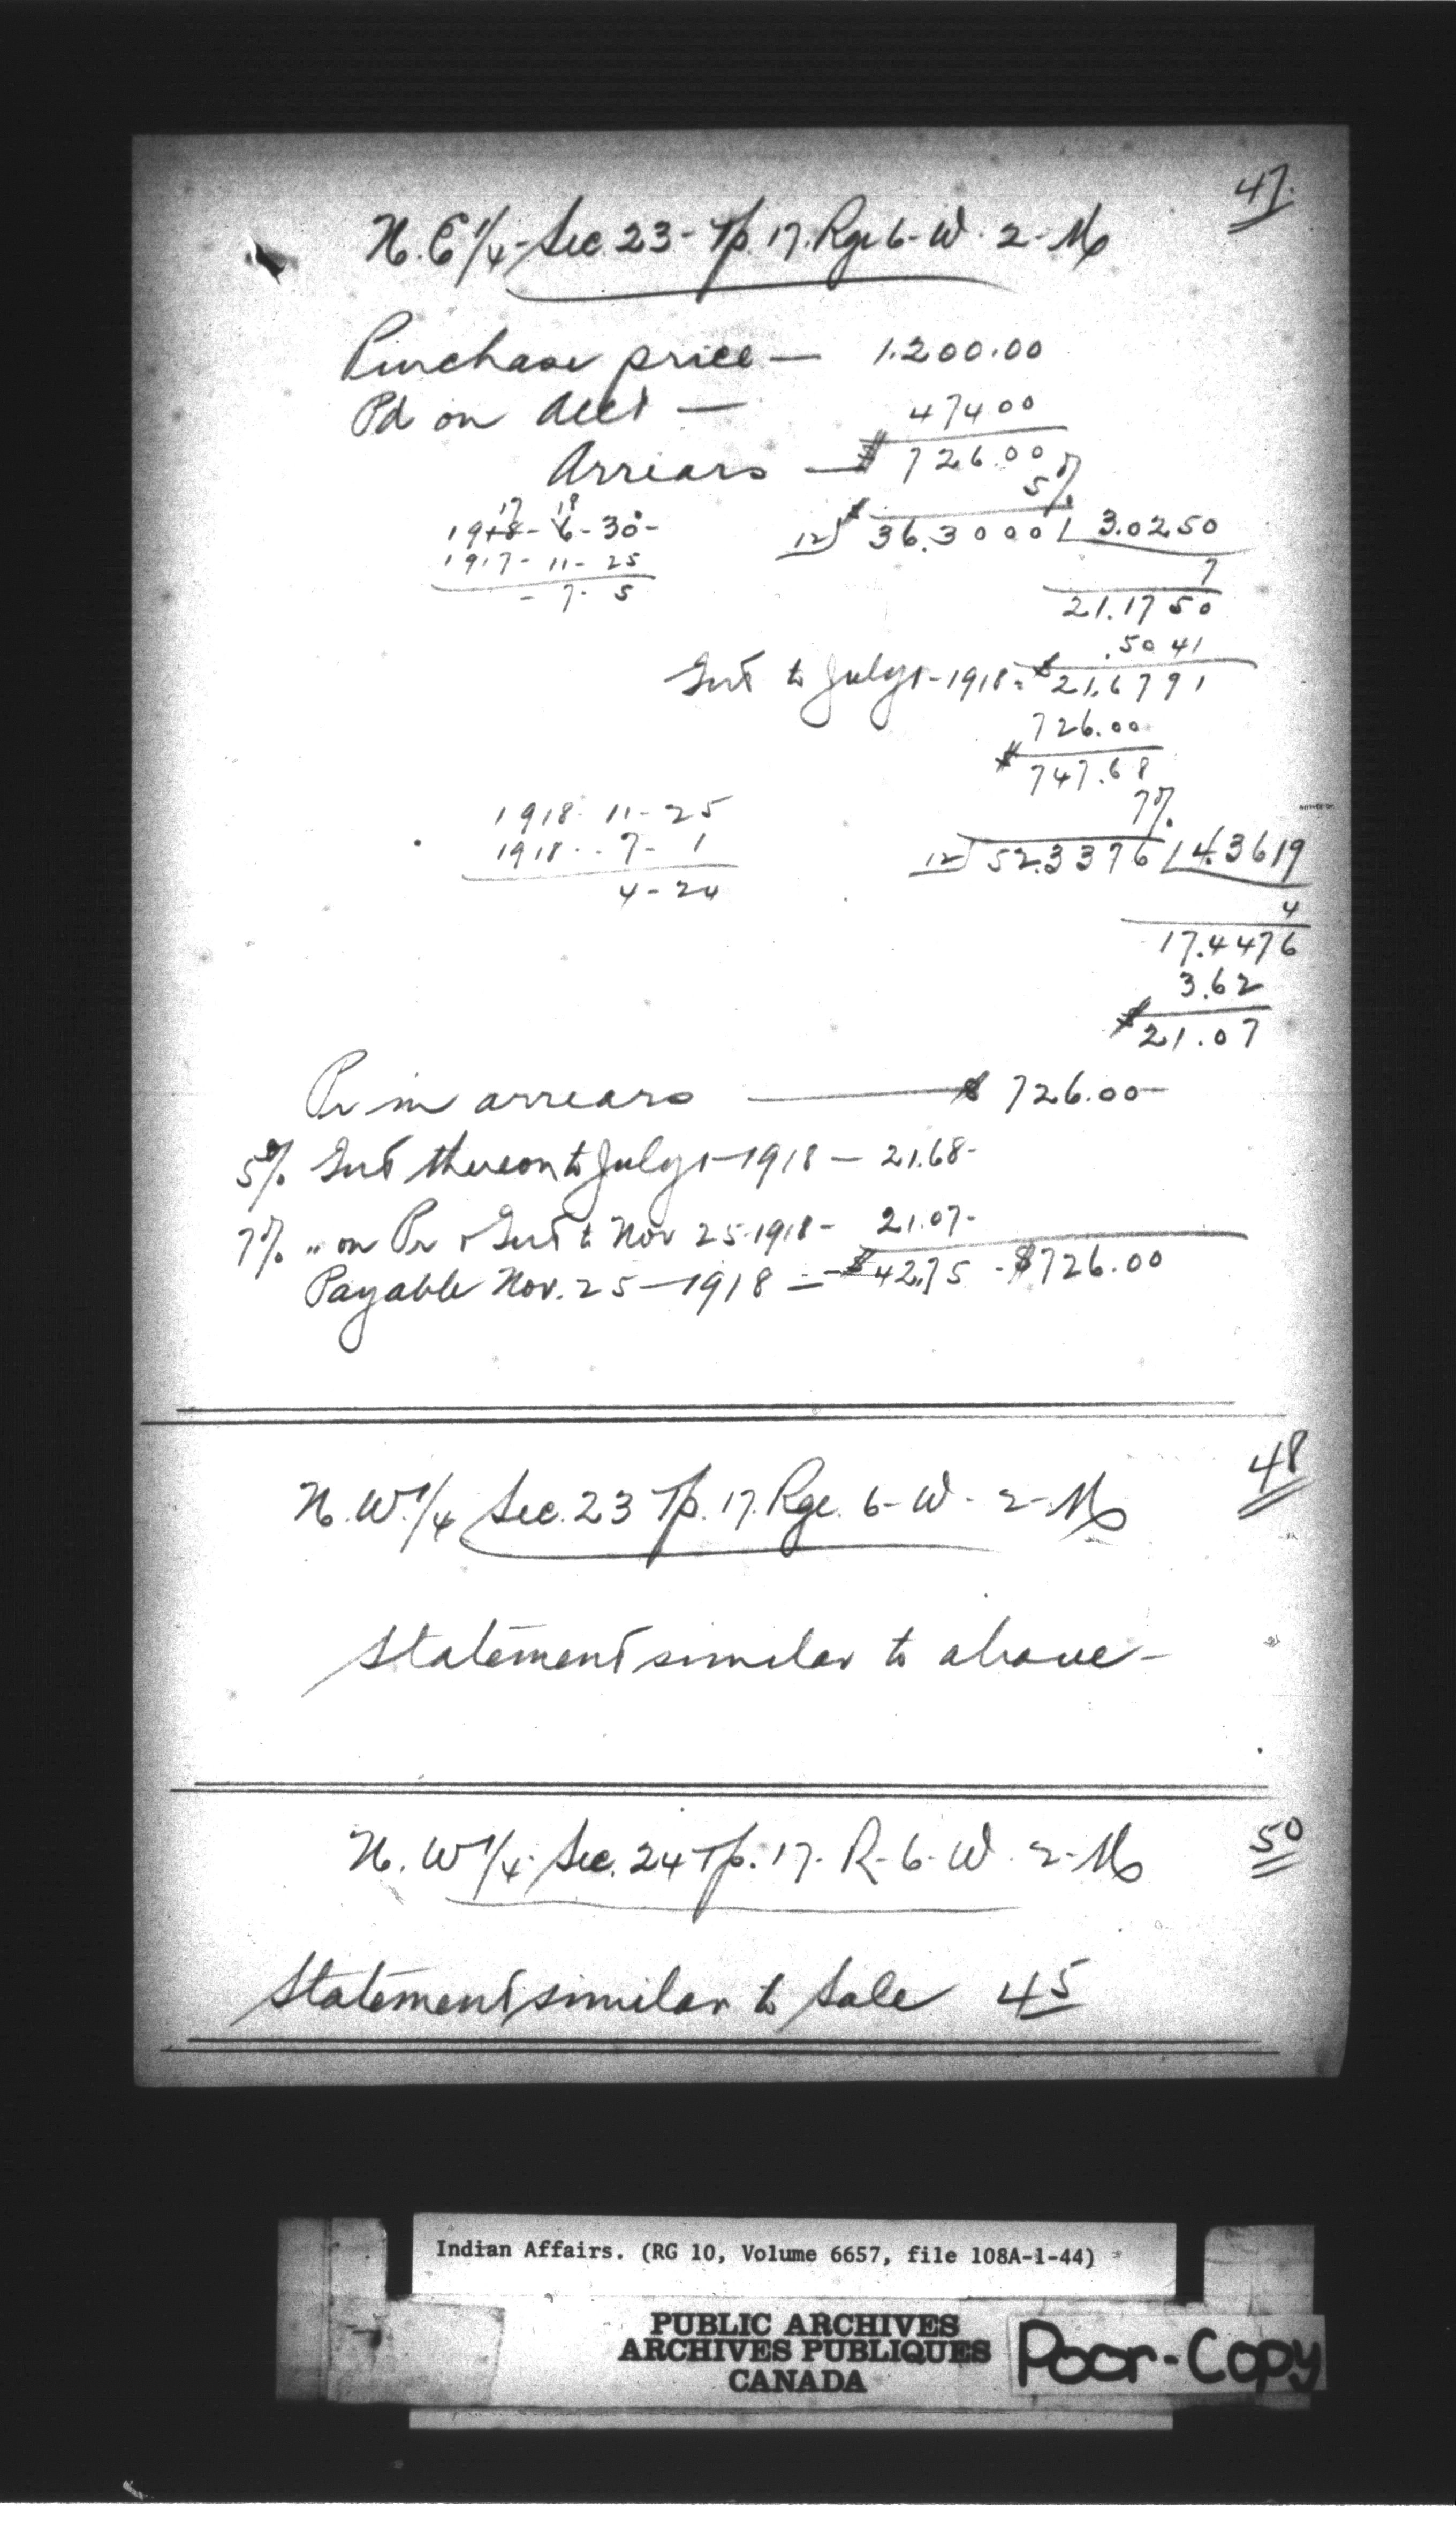 47.
N. E 1/4 - Sec. 23 - Tp. 17. Rge 6 - W. 2 - M
Purchase price — 1.200.00
Pd on Acct — 474 00
Arrears — $ 726.00
5%
17 18
1918 - 6 - 30 -
12) $ 36.3000 | 3.0250
1917 - 11 - 25
7
- 7 - 5
21.1750
.5041
Int to July 1 - 1918 = $ 21.6791
726.00
$ 747.68
7%
1918 - 11 - 25
1918 - 7 - 1
12) 52.3376 | 4.3619
4 - 24
4
17.4476
3.62
$ 21.07
Pr in arrears — $ 726.00 —
5% Int thereon to July 1 - 1918 — 21.68 -
7% " on Pr & Int to Nov 25 - 1918 - 21.07 -
Payable Nov. 25 — 1918 = - $42.75 - $726.00
48
N. W. 1/4 Sec. 23 Tp. 17. Rge. 6 - W. 2 - M
Statement similar to above -
50
N. W 1/4 - Sec. 24 Tp. 17 - R - 6 - W. 2 - M
Statement similar to Sale 45
Indian Affairs. (RG 10, Volume 6657, file 108A-1-44)
PUBLIC ARCHIVES
ARCHIVES PUBLIQUES
CANADA
Poor-Copy